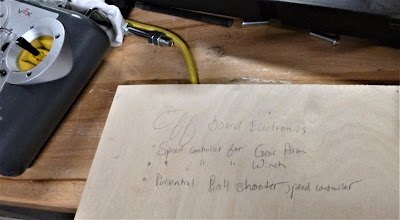 Off Board Electronics
* Speed controller for Gear Arm
* " " " Winch
* Potential Ball shooter speed controller